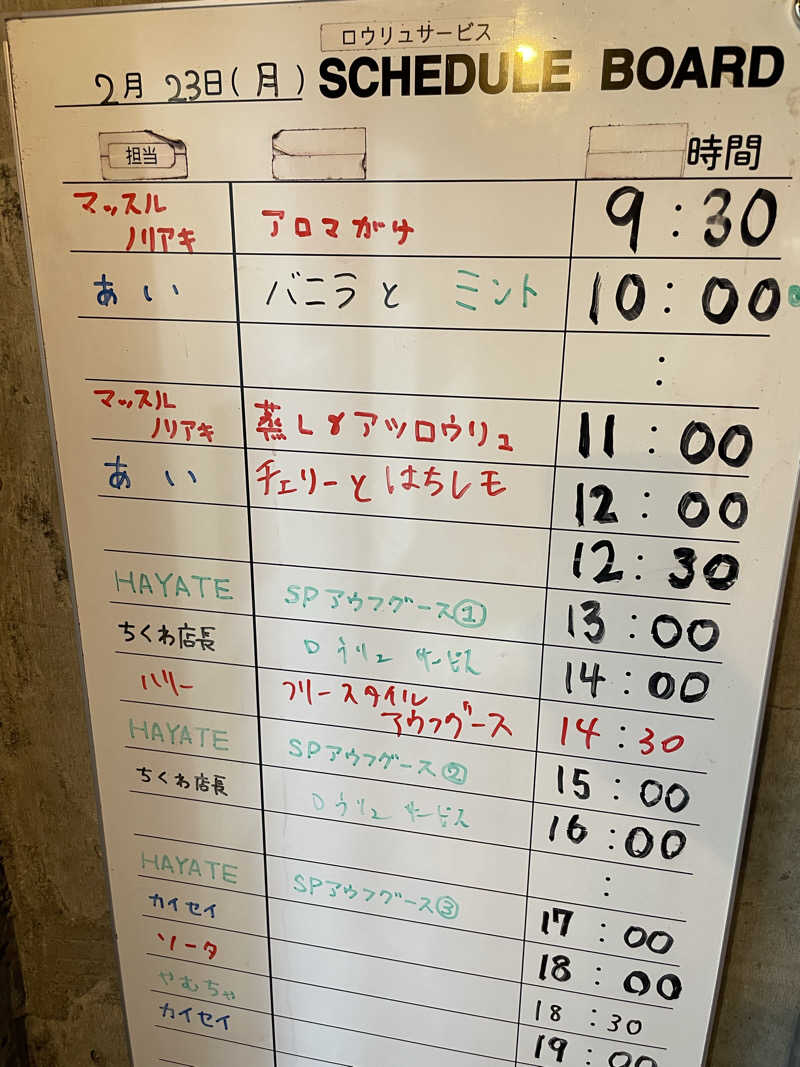 ロウリュサービス
2月 23日(月) SCHEDULE BOARD
担当 時間
マッスル
ノリアキ アロマがけ 9:30
あい バニラと ミント 10:00
:
マッスル
ノリアキ 蒸しγアツロウリュ 11:00
あい チェリーとはちレモ 12:00
12:30
HAYATE SPアウフグース① 13:00
ちくわ店長 ロウリュ サービス 14:00
ハリー フリースタイル
アウフグース 14:30
HAYATE SPアウフグース② 15:00
ちくわ店長 ロウリュ サービス 16:00
:
HAYATE SPアウフグース③ 17:00
カイセイ 18:00
ソータ 18:30
やむちゃ 19:00
カイセイ